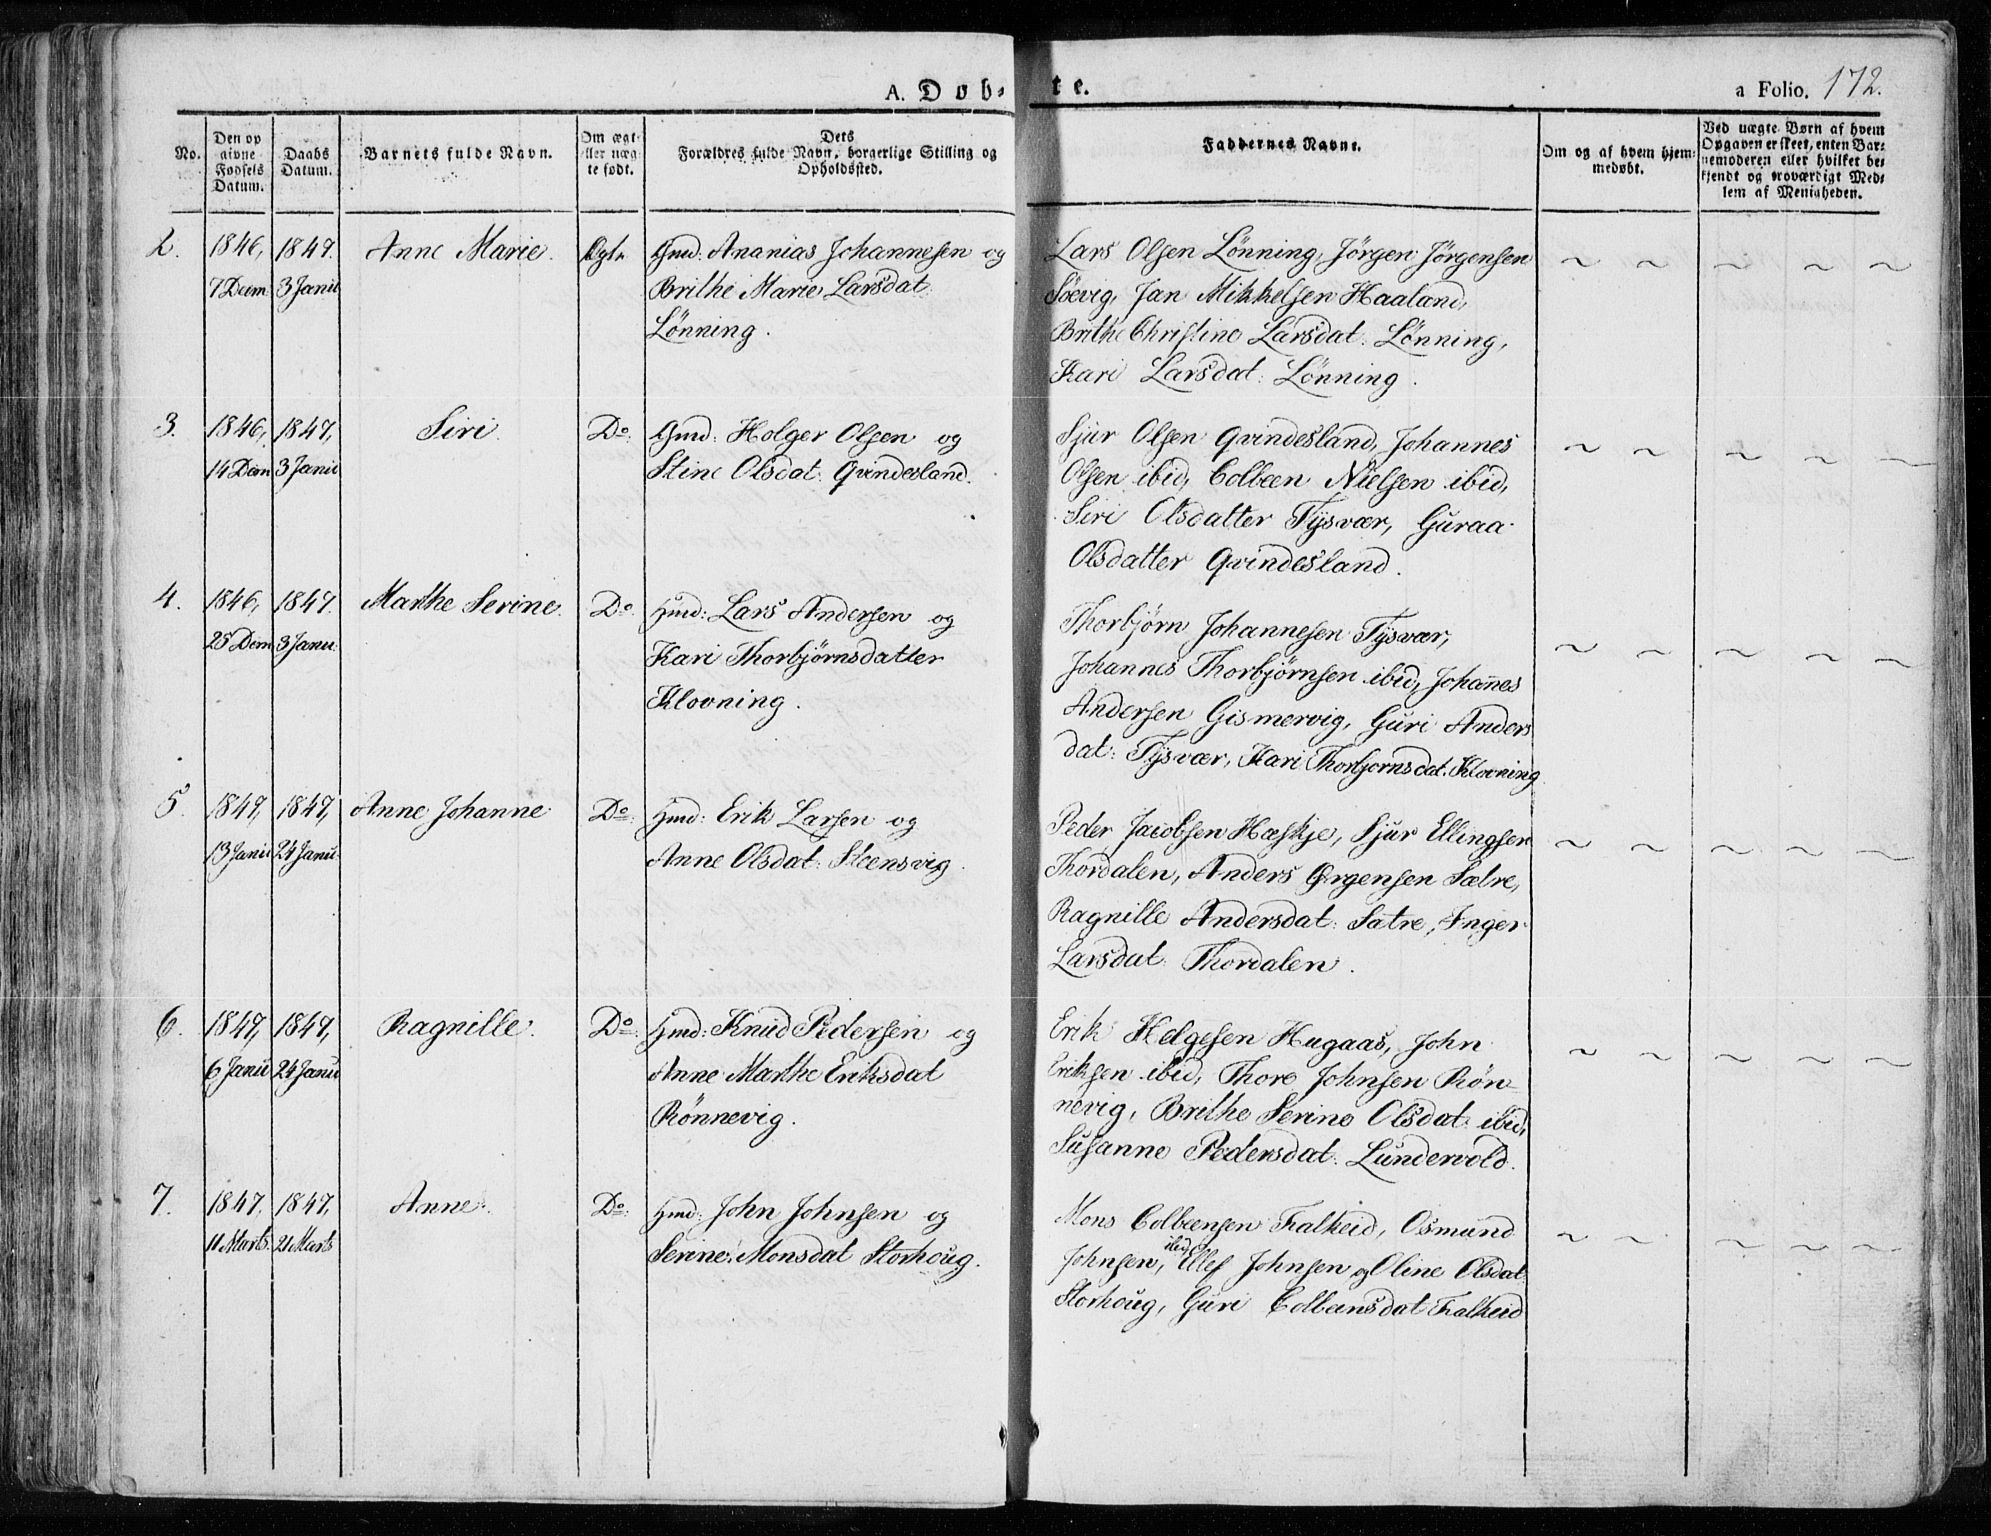 A. Døb-te.
a Folio. 172.
No.
Den op givne Fødsels Datum.
Daabs Datum.
Barnets fulde Navn.
Om ægte eller uægte født.
Dets Forældres fulde Navn, borgerlige Stilling og Opholdssted.
Faddernes Navne.
Om og af hvem hjemmedøbt.
Ved uægte Børn af hvem Opgaven er skeet, enten Barnemoderen eller hvilket bekjendt og troværdigt Medlem af Menigheden.
2. 1846, 1847. Anne Marie. Ægte Gmd: Ananias Johannesen og
7 Decm 3 Janu
Brithe Marie Larsdat.
Lönning.
Lars Olsen Lönning, Jörgen Jörgensen
Söevig, Jan Mikkelsen Haaland,
Brithe Christine Larsdat: Lönning,
Kari Larsdat: Lönning.
3. 1846, 1847, Siri. Do. Gmd: Holger Olsen og
14 Decm 3 Janu Stine Olsdat: Qvindesland.
Sjur Olsen Qvindesland, Johannes
Olsen ibid, Colbæn Nielsen ibid,
Siri Olsdatter Tysvær, Guraa
Olsdatter Qvindesland.
4. 1846, 1847. Marthe Serine. Do. Hmd: Lars Andersen og
25 Decm 3 Janu: Kari Thorbjörnsdatter
Klovning.
Thorbjörn Johannesen Tysvær,
Johannes Thorbjörnsen ibid, Johannes
Andersen Gismervig, Guri Anders
dat: Tysvær, Kari Thorbjornsdat. Klovning
5. 1847, 1847, Anne Johanne Do. Hmd: Erik Larsen og
13 Janu 24 Janu. Anne Olsdat: Steensvig.
Peder Jacobsen Hæskje, Sjur Ellingsen
Thordalen, Anders Ørgensen Sætre,
Ragnille Andersdat: Satre, Inger
Larsdat: Thordalen.
6. 1847, 1847, Ragnille. Do. Hmd: Knud Pedersen og
6 Janu 24 Janu Anne Marthe Eriksdat
Rönnevig.
Erik Helgesen Hugaas, John
Eriksen ibid, Thore Johnsen Rön-
nevig, Brithe Serine Olsdat: ibid,
Susanne Pedersdat: Lundevold.
7. 1847. 1847, Anne. Do. Hmd: John Johnsen og
11 Marts. 21 Marts Serine Monsdat Storhoug.
Mons Colbænsen Falkeid, Osmund
Johnsen, ibid, Ellef Johnsen og Oline Olsdat
Storhoug, Guri Colbænsdat Falkeid